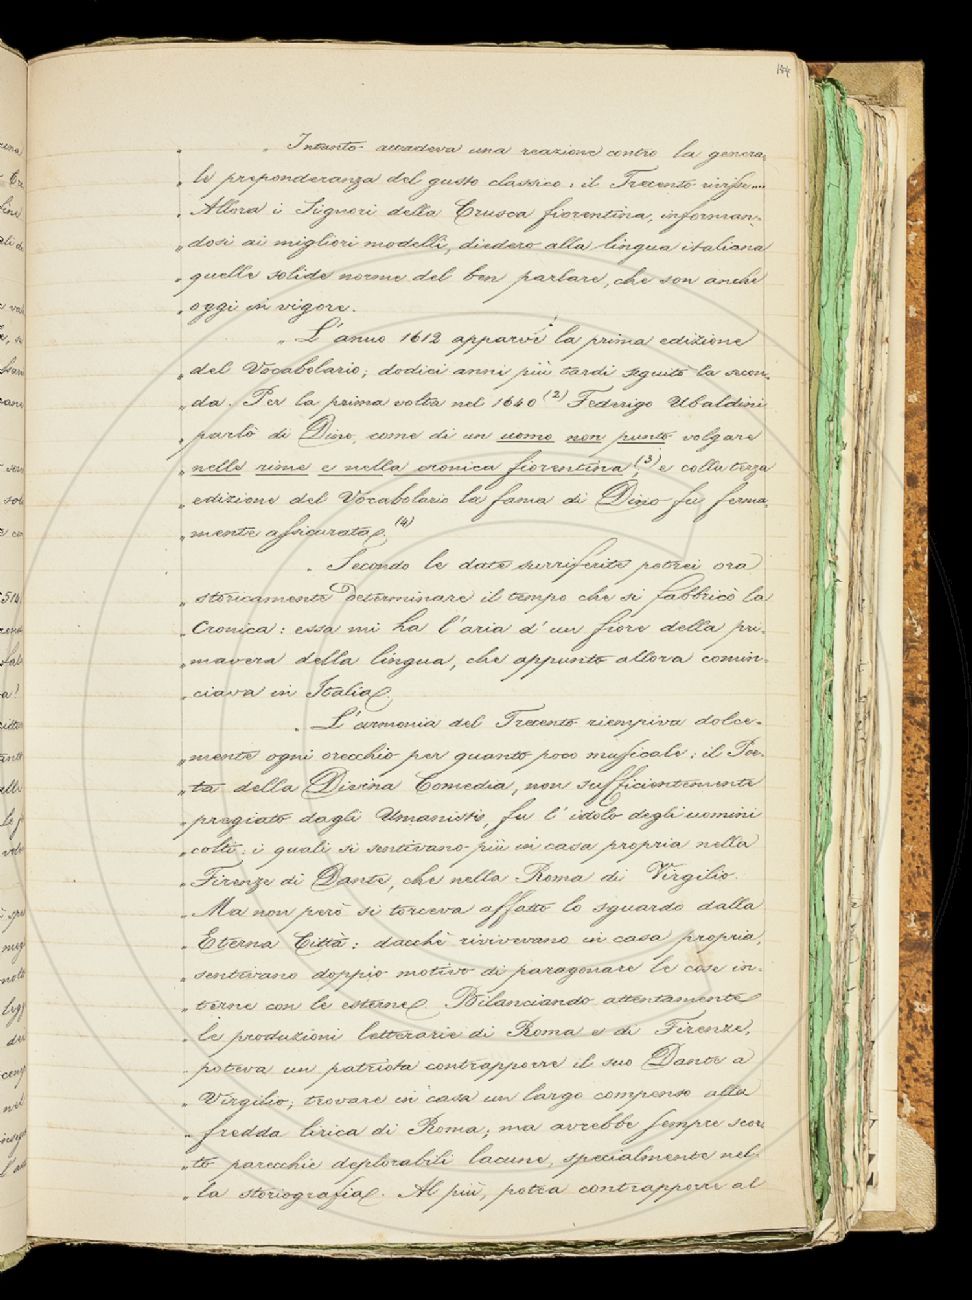 184
„ Intanto accadeva una reazione contro la genera-
„ le preponderanza del gusto classico: il Trecento rivisse....
„ Allora i Signori della Crusca fiorentina, informan-
„ dosi ai migliori modelli, diedero alla lingua italiana
„ quelle solide norme del ben parlare, che son anche
„ oggi in vigore.
„ L'anno 1612 apparve la prima edizione
„ del Vocabolario; dodici anni più tardi seguitò la secon-
„ da. Per la prima volta nel 1640 (2) Federigo Ubaldini
„ parlò di Dino, come di un uomo non punto volgare
„ nelle rime e nella cronica fiorentina (3), e colla terza
„ edizione del Vocabolario la fama di Dino fu ferma-
„ mente assicurata. (4)
„ Secondo le date surriferite potrei ora
„ storicamente determinare il tempo che si fabbricò la
„ Cronica: essa mi ha l'aria d'un fiore della pri-
„ mavera della lingua, che appunto allora comin-
„ ciava in Italia.
„ L'armonia del Trecento riempiva dolce-
„ mente ogni orecchio per quanto poco musicale; il Poe-
„ ta della Divina Comedia, non sufficientemente
„ pregiato dagli Umanisti, fu l'idolo degli uomini
„ colti: i quali si sentivano più in casa propria nella
„ Firenze di Dante, che nella Roma di Virgilio.
„ Ma non però si torceva affatto lo sguardo dalla
„ Eterna Città: dacchè rivivevano in casa propria,
„ sentivano doppio motivo di paragonare le cose in-
„ terne con le esterne. Bilanciando attentamente
„ le produzioni letterarie di Roma e di Firenze,
„ poteva un patriota contrapporre il suo Dante a
„ Virgilio; trovare in casa un largo compenso alla
„ fredda lirica di Roma; ma avrebbe sempre scor-
„ to parecchie deplorabili lacune, specialmente nel-
„ la storiografia. Al più, potea contrapporre al